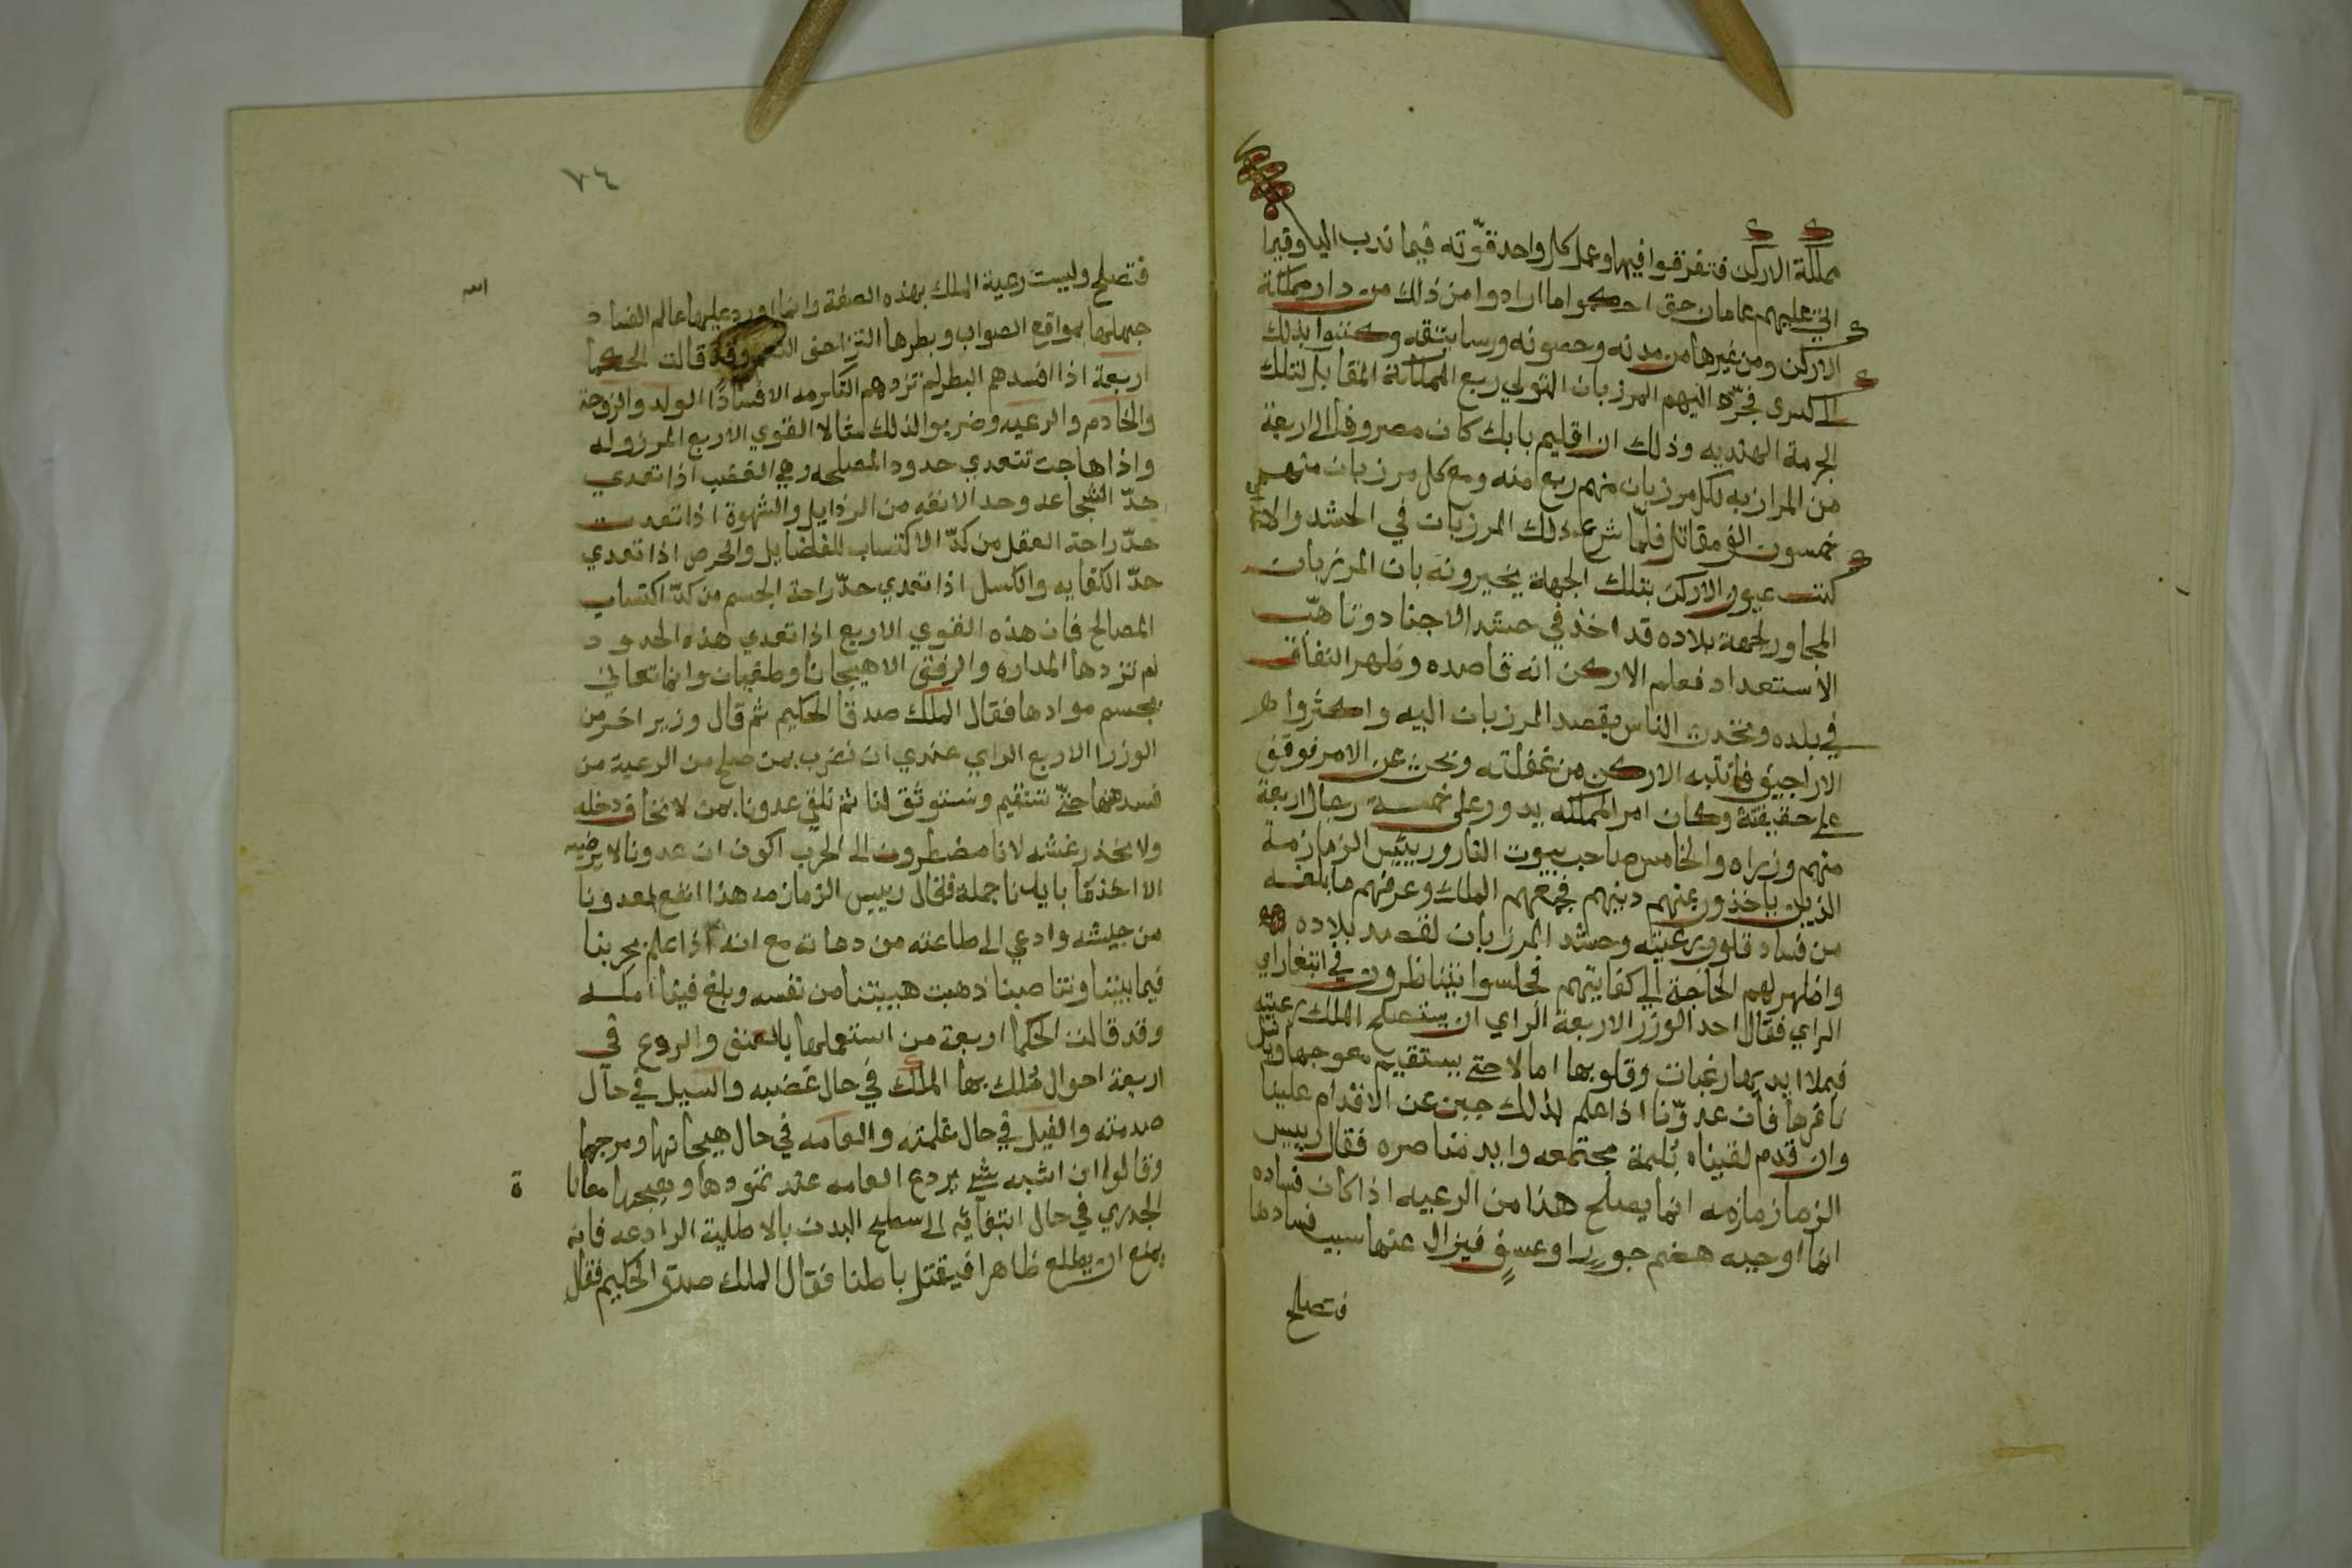 مملكة الاركن فتفرقوا فيها وعمل كل واحد قوته فيما ندب اليه وقيما
اتي عليهم عامان حتى احكموا ما ارادوا من ذلك من دار مملكة
الاركن ومن غيرها من مدنه وحصونه ورساتيقه وكتبوا بذلك
الى كسرى فجرد اليهم المرزبان المتولي ربع المملكة المقابل لتلك
الجهة الهنديه وذلك ان اقليم بابك كان مصروفا الى اربعة
من المرازبه لكل مرزبان منهم ربع منه ومع كل مرزبان منهم
خمسون الف مقاتل فلما شرع ذلك المرزبان في الحشد والا
كتب عيون الاركن بتلك الجهة يخبرونه بان المرزبان
المجاور لجهة بلاده قد اخذ في حشد الاجناد وتاهب
الاستعداد فعلم الاركن انه قاصده وظهر النفاق
في بلده وتحدث الناس بقصد المرزبان اليه واكثروا
الاراجيف فانتبه الاركن من غفلته وبحث عن الامر فوقف
على حقيقته وكان امر المملكه يدور على خمسة رجال اربعة
منهم وزراه والخامس صاحب بيوت النار ورييس الزمازمة
الذين ياخذون عنهم دينهم فجمعهم الملك وعرفهم ما بلغه
من فساد قلوب رعيته وحشد المرزبان لقصد بلاده
واظهر لهم الحاجة الى كفايتهم فجلسوا يتناظرون في ابتغا راي
الراي فقال احد الوزرا الاربعة الراي ان يستصلح الملك رعيته
فيملا ايديها رغبات وقلوبها امالا حتى يستقيم معوجها ويل
نافرها فان عدونا اذا علم بذلك جبن عن الاقدام علينا
وان قدم لقيناه بكلمة مجتمعه وايد متناصره فقال رييس
الزمازمه انما يصلح هذا من الرعيه اذا كان فساده
انما اوجبه هضم جور او عسف فيزال عنها سبب فسادها
فتصلح
٧٤
فتصلح وليست رعية الملك بهذه الصفة وانما اورد عليها عالم الفساد
جهلها بمواقع الصواب وبطرها وقد قالت الحكما
اربعة اذا افسدهم البطر لم تزدهم التكرمه الا فسادا الولد والزوجة
والخادم والرعيه وضربوا لذلك مثالا القوي الاربع المرزوله
واذا هاجت تتعدي حدود المصلحه وهي الغضب اذا تعدي
حد الشجاعه وحد الانفه من الرذايل والشهوة اذا تعدت
حد راحة العقل من كد الاكتساب للفضايل والحرص اذا تعدي
حد الكفايه والكسل اذا تعدي حد راحة الجسم من كد اكتساب
المصالح فان هذه القوي الاربع اذا تعدي هذه الحدود
لم تزدها المداره والرفق الا هيجانا وطغيان وانما تعاني
بحسم موادها فقال الملك صدق الحكيم ثم قال وزير اخر من
الوزرا الاربع الراي عندي ان نضرب بمن صلح من الرعية من
فسد منها حتى تستقيم ونستوثق لنا ثم نلقي عدونا بمن لا نخاف دخله
ولا نحذر غشه لانا مضطرون الى الحرب اكون ان عدونا لا يرضيه
الا اخذ ما بايدينا جملة فقال رييس الزمازمه هذا انفع لعدونا
من جيشه وادعي الى طاعته من دعاته مع انه اذا علم بحربنا
فيما بيننا وتناصبنا ذهبت هيبتنا من نفسه وبلغ فينا امله
وقد قالت الحكما اربعة من استعملها بالعنف والردع في
اربعة احوال هلك بها الملك في حال غضبه والسيل في حال
صدمته والفيل في حال غلمته والعامه في حال هيجانها ومرجها
وقالوا ان اشبه شي بردع العامه عند تمردها وهيجها معانا ة
الجدري في حال انبعاثه الى سطح البدن بالاطلية الرادعه فانه
يمنع ان يطلع ظاهرا فيقتل باطنا فقال الملك صدق الحكيم فقال